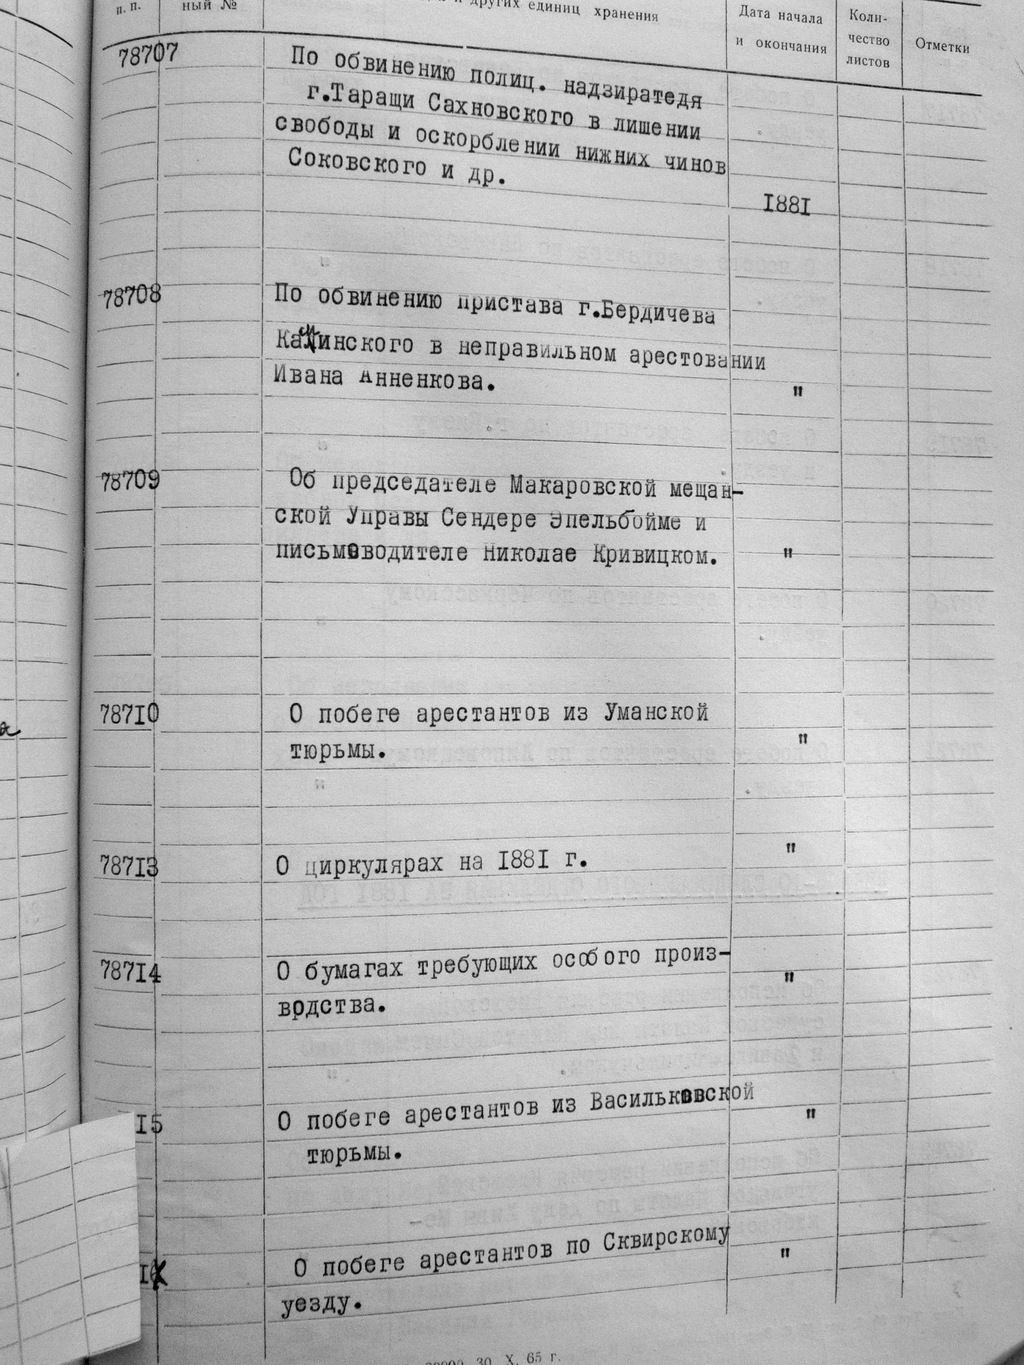 п. п.
ный №
и других единиц хранения
Дата начала
и окончания
Коли-
чество
листов
Отметки
78707
По обвинению полиц. надзиратедя
г.Таращи Сахновского в лишении
свободы и оскорблении нижних чинов
Соковского и др.
1881
78708
По обвинению пристава г.Бердичева
инского в неправильном арестовании
Ивана Анненкова.
"
78709
Об председателе Макаровской мещан-
ской Управы Сендере Эпельбойме и
письмоводителе Николае Кривицком.
"
78710
О побеге арестантов из Уманской
тюрьмы.
"
78713
О циркулярах на 1881 г.
"
78714
О бумагах требующих особого произ-
врдства.
"
15
О побеге арестантов из Васильковской
тюрьмы.
"
О побеге арестантов по Сквирскому
уезду.
"
30. X. 65 г.